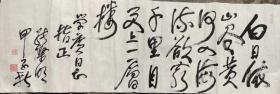 白日依
山尽黄
河入海
流欲穷
千里目
更上一層
樓
同志
指正
甲子秋